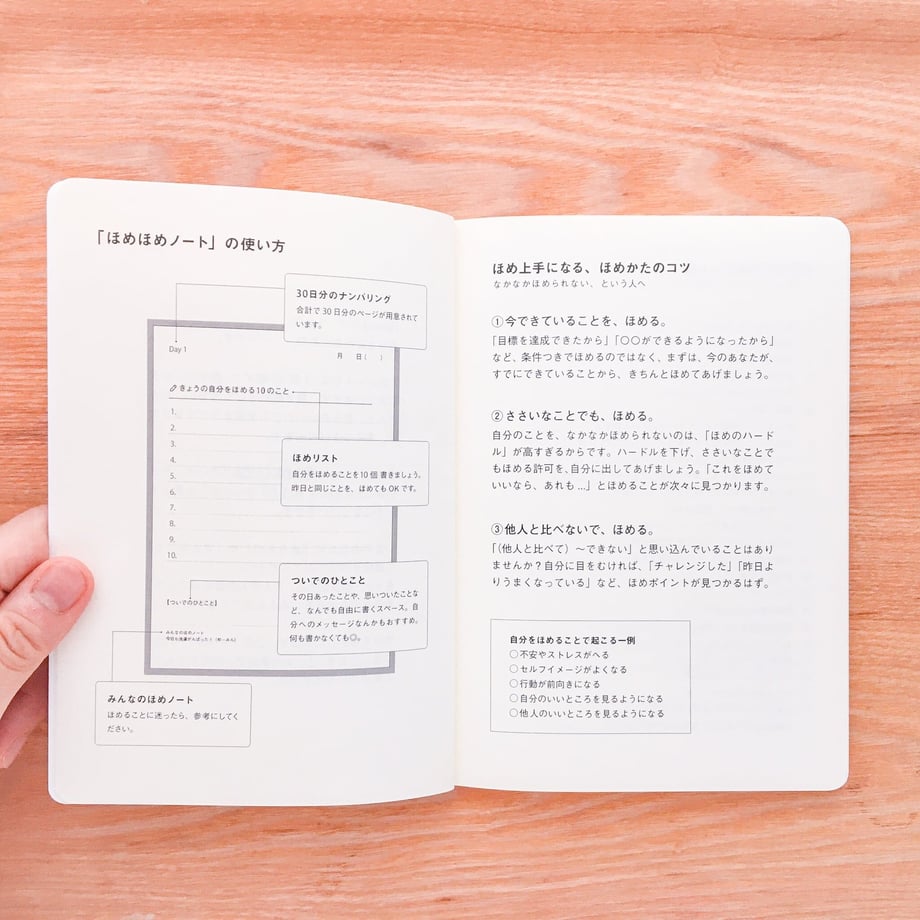 「ほめほめノート」の使い方
30日分のナンバリング
合計で30日分のページが用意されて
います。
Day 1
月 日( )
きょうの自分をほめる10のこと
1.
2.
3.
4.
5.
6.
7.
8.
9.
10.
ほめリスト
自分をほめることを10個 書きましょう。
昨日と同じことを、ほめてもOKです。
ついでのひとこと
その日あったことや、思いついたことな
ど、なんでも自由に書くスペース。自
分へのメッセージなんかもおすすめ。
何も書かなくても◎。
【ついでのひとこと】
みんなのほめノート
みんなのほめノート
ほめることに迷ったら、参考にしてく
ださい。
ほめ上手になる、ほめかたのコツ
なかなかほめられない、という人へ
①今できていることを、ほめる。
「目標を達成できたから」「〇〇ができるようになったから」
など、条件つきでほめるのではなく、まずは、今のあなたが、
すでにできていることから、きちんとほめてあげましょう。
②ささいなことでも、ほめる。
自分のことを、なかなかほめられないのは、「ほめのハード
ル」が高すぎるからです。ハードルを下げ、ささいなことで
もほめる許可を、自分に出してあげましょう。「これをほめて
いいなら、あれも…」とほめることが次々に見つかります。
③他人と比べないで、ほめる。
「(他人と比べて)〜できない」と思い込んでいることはあり
ませんか?自分に目をむければ、「チャレンジした」「昨日よ
りうまくなっている」など、ほめポイントが見つかるはず。
自分をほめることで起こる一例
〇不安やストレスがへる
〇セルフイメージがよくなる
〇行動が前向きになる
〇自分のいいところを見るようになる
〇他人のいいところを見るようになる